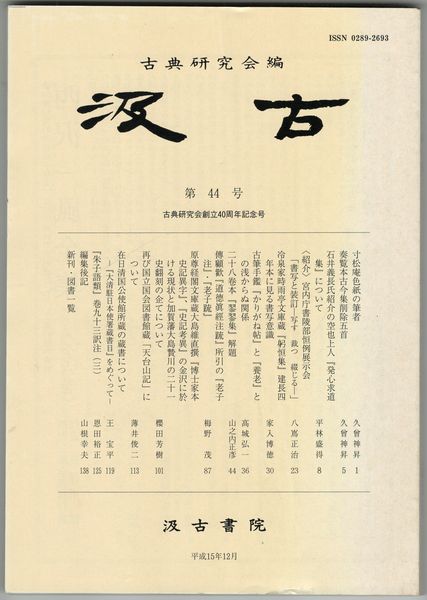 ISSN 0289-2693
古典研究会編
汲古
第 44 号
古典研究会創立40周年記念号
寸松庵色紙の筆者 久曾神昇 1
奏覧本古今集削除五首 久曾神昇 5
石井義長氏紹介の空也上人『発心求道
集』について 平林盛得 8
〈紹介〉宮内庁書陵部恒例展示会
「書写と装訂―写す 裁つ 綴じる―」 八嶌正治 23
冷泉家時雨亭文庫蔵『躬恒集』建長四
年本に見る書写意識 家入博徳 30
古筆手鑑『かりがね帖』と『養老』と
の浅からぬ関係 高城弘一 36
二十八巻本『翏翏集』解題 山之内正彦 44
傅顧歡『道德眞經注疏』所引の『老子
注』・『老子疏』 梅野 茂 87
原尊経閣文庫蔵大島維直撰『博士家本
史記異字』、『史記考異』の金沢に於
ける現状と加賀藩大島贄川の二十一
史翻刻の企てについて 櫻田芳樹 101
再び国立国会図書館蔵『天台山記』に
ついて 薄井俊二 113
在日清国公使館所蔵の蔵書について
―『大清駐日本使署蔵書目』をめぐって― 王 宝平 119
『朱子語類』巻九十三訳注(三) 恩田裕正 125
編集後記 山根幸夫 138
新刊・図書一覧
汲古書院
平成15年12月